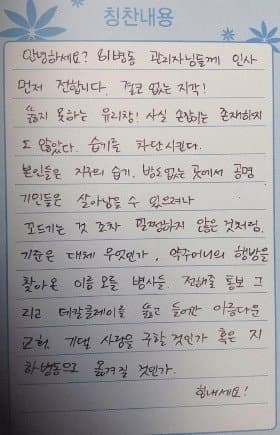 칭찬내용
안녕하세요? 81병동 관리자님들께 인사
먼저 전합니다. 결코 없는 지각!
뚫지 못하는 유리창! 사실 손잡이는 존재하지
도 않았다. 습기를 차단시킨다.
본인들은 자주의 습기. 밤도없는 곳에서 공명
기인들은 살아남을 수 있으려나
꼬드기는 것 조차 말쩡하지 않은 것처럼.
기준은 대체 무엇인가, 약주머니의 행방을
찾아온 이름 모를 병사들. 전해줄 통보 그
리고 데칼클레이를 뚫고 들어간 이름다운
교회, 기댈 사랑을 구할 것인가 혹은 지
하병동으로 옮겨질 것인가.
힘내세요!